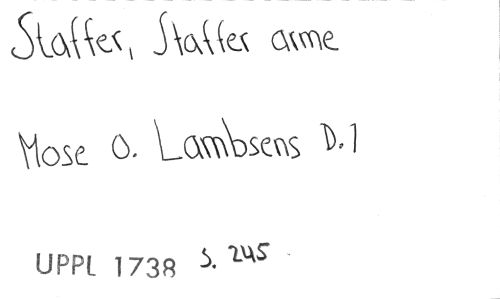 Staffer, Staffer arme
Mose o. Lambsens D.1
UPPL 1738 S. 245